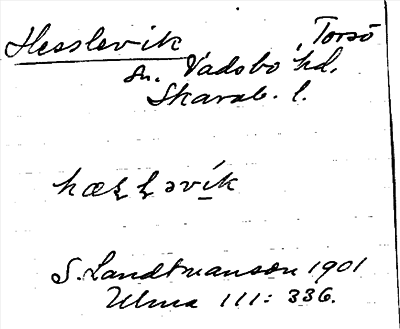 Hesslevik, Torsö
sn. Vadsbo hd.
Skarab. l.
S. Landtmanson 1901
Ulma 111: 336.